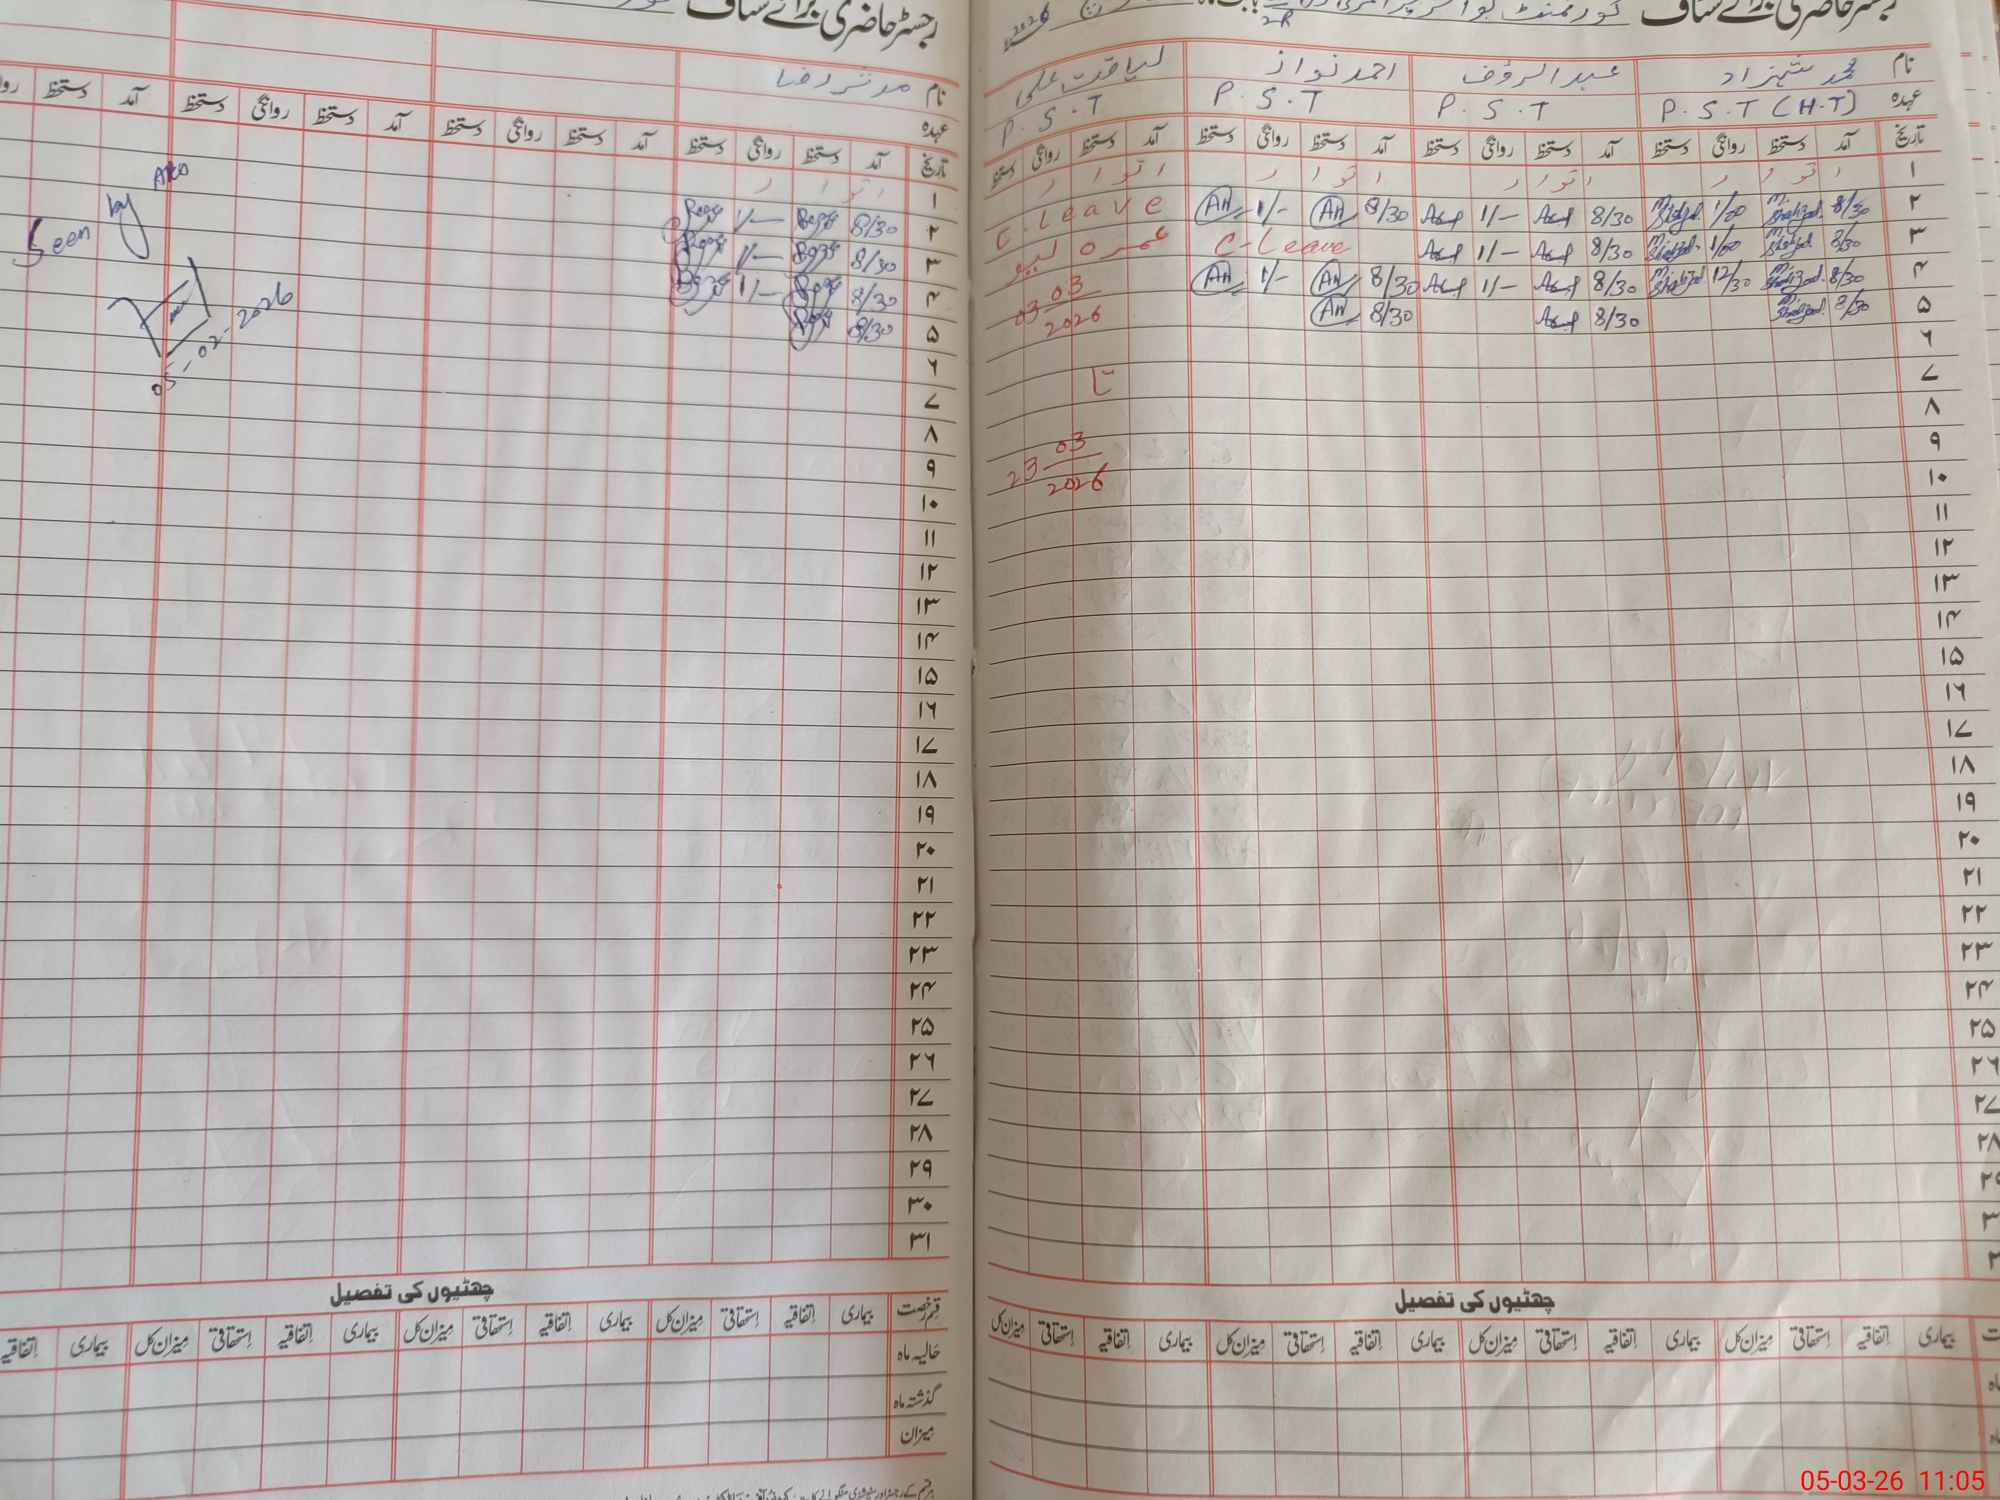 رجسٹر حاضری برائے سٹاف
2026
نام محمد شہزاد عبدالرؤف احمد نواز لیاقت علی
عہدہ P.S.T (H.T) P.S.T P.S.T P.S.T
تاریخ آمد دستخط روانگی دستخط آمد دستخط روانگی دستخط آمد دستخط روانگی دستخط آمد دستخط روانگی دستخط
۱ اتوار اتوار اتوار اتوار
۲ 8/30 1/00 8/30 1/- 8/30 AN 1/- AN C.Leave
۳ 8/30 1/00 8/30 1/- C-Leave عمرہ لیو
۴ 8/30 12/30 8/30 1/- 8/30 AN 1/- AN 03 03/2026
۵ 8/30 8/30 8/30 AN
۶
۷ تا
۸
۹ 23 03/2026
۱۰
۱۱
۱۲
۱۳
۱۴
۱۵
۱۶
۱۷
۱۸
۱۹
۲۰
۲۱
۲۲
۲۳
۲۴
۲۵
۲۶
۲۷
۲۸
چھٹیوں کی تفصیل
بیماری اتفاقیہ استحقاقی میزان کل بیماری اتفاقیہ استحقاقی میزان کل بیماری اتفاقیہ استحقاقی میزان کل
رجسٹر حاضری برائے سٹاف
نام مدثر رضا
عہدہ
تاریخ آمد دستخط روانگی دستخط آمد دستخط روانگی دستخط آمد دستخط روانگی دستخط آمد دستخط
۱ اتوار
۲ 8/30 1/-
۳ 8/30 1/-
۴ 8/30 1/-
۵ 8/30
Seen by AEO
05-02-2026
۶
۷
۸
۹
۱۰
۱۱
۱۲
۱۳
۱۴
۱۵
۱۶
۱۷
۱۸
۱۹
۲۰
۲۱
۲۲
۲۳
۲۴
۲۵
۲۶
۲۷
۲۸
۲۹
۳۰
۳۱
چھٹیوں کی تفصیل
قسم رخصت بیماری اتفاقیہ استحقاقی میزان کل بیماری اتفاقیہ استحقاقی میزان کل بیماری اتفاقیہ استحقاقی میزان کل بیماری اتفاقیہ
حالیہ ماہ
گذشتہ ماہ
میزان
05-03-26 11:05